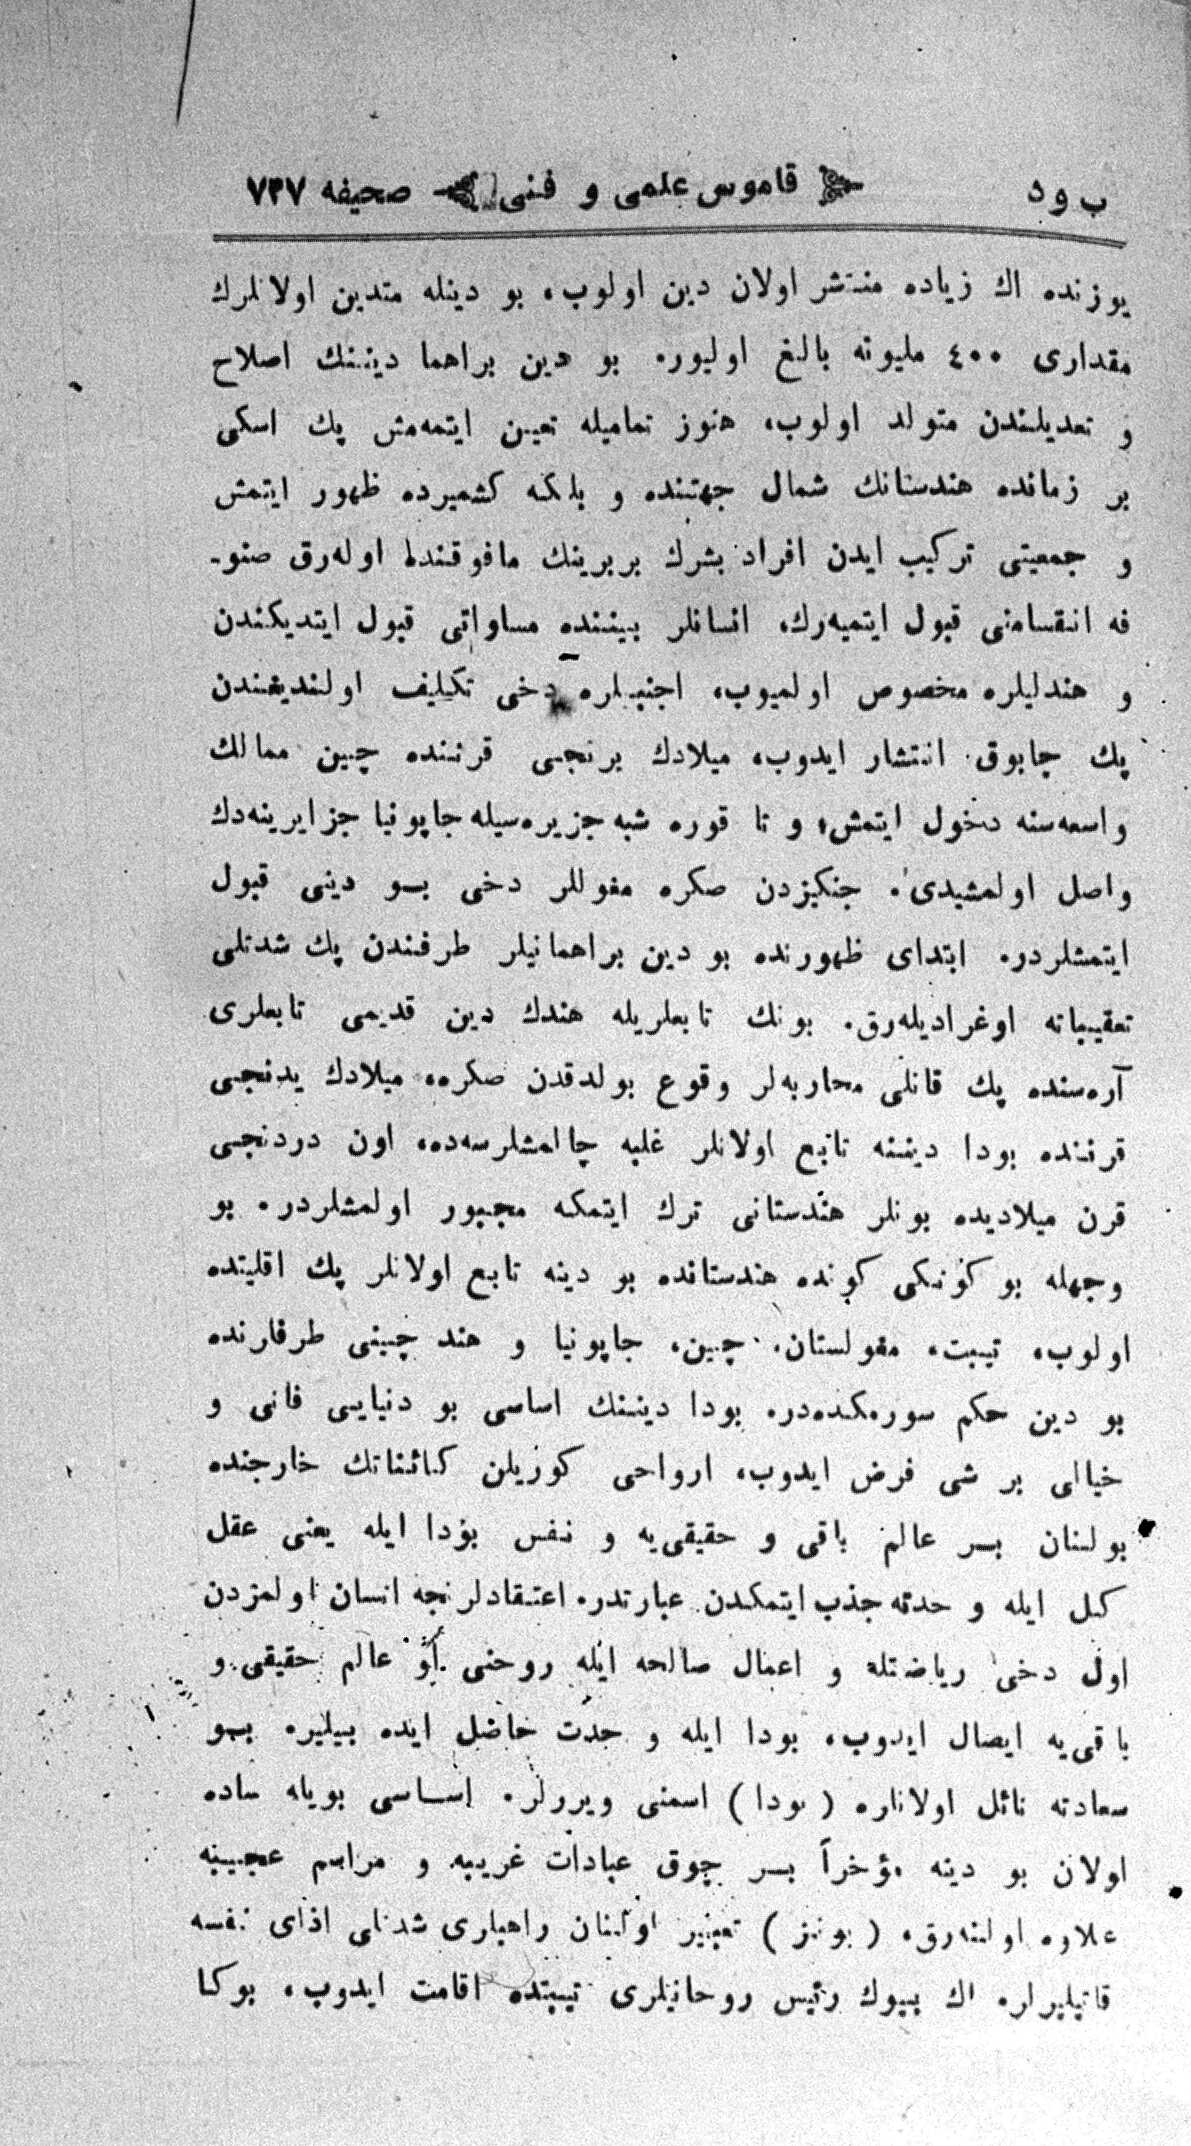 ب و د قاموس علمی و فنی صحیفه ٧٣٧
یوزنده اك زیاده منتشر اولان دین اولوب، بو دینله متدین اولانلرك
مقداری ٤٠٠ ملیونه بالغ اولیور. بو دین براهما دیننك اصلاح
و تعدیلندن متولد اولوب، هنوز تمامیله تعین ایتمه‌مش پك اسکی
بر زمانده هندستانك شمال جهتنده و بلکه کشمیرده ظهور ایتمش
و جمعیتی ترکیب ایدن افراد بشرك بربرینك مافوقنده اوله‌رق صنو-
فه انقسامنی قبول ایتمیه‌رك، انسانلر بیننده مساواتی قبول ایتدیکندن
و هندلیلره مخصوص اولمیوب، اجنبیلره دخی تکلیف اولندیغندن
پك چابوق انتشار ایدوب، میلادك برنجی قرننده چین ممالك
واسعه‌سنه دخول ایتمش، و تا قوره شبه جزیره‌سیله جاپونیا جزایرینه‌دك
واصل اولمشیدی. جنکیزدن صکره مغوللر دخی بو دینی قبول
ایتمشلردر. ابتدای ظهورنده بو دین براهمانیلر طرفندن پك شدتلی
تعقیباته اوغرادیله‌رق. بونك تابعلریله هندك دین قدیمی تابعلری
آره‌سنده پك قانلی محاربه‌لر وقوع بولدقدن صکره، میلادك یدنجی
قرننده بودا دیننه تابع اولانلر غلبه چالمشلرسه‌ده، اون دردنجی
قرن میلادیده بونلر هندستانی ترك ایتمکه مجبور اولمشلردر. بو
وجهله بو کونکی کونده هندستانده بو دینه تابع اولانلر پك اقلیتده
اولوب، تیبت، مغولستان، چین، جاپونیا و هند چینی طرفلرنده
بو دین حکم سورمکده‌در. بودا دیننك اساسی بو دنیایی فانی و
خیالی بر شی فرض ایدوب، ارواحی کوریلن کائناتك خارجنده
بولنان بر عالم باقی و حقیقی‌یه و نفس بودا ایله یعنی عقل
کل ایله و حدته جذب ایتمکدن عبارتدر. اعتقادلرنجه انسان اولمزدن
اول دخی ریاضتله و اعمال صالحه ایله روحنی او عالم حقیقی و
باقی‌یه ایصال ایدوب، بودا ایله و حدت حاصل ایده بیلیر. بو
سعادته نائل اولانلره ( بودا ) اسمنی ویررلر. اساسی بویله ساده
اولان بو دینه مؤخراً بر چوق عبادات غریبه و مراسم عجیبه
علاوه اولنه‌رق، ( بونز ) تعبیر اولنان راهبلری شدتلی اذای نفسه
قاتیلیرلر. اك بیوك رئیس روحانیلری تیبتده اقامت ایدوب، بوکا